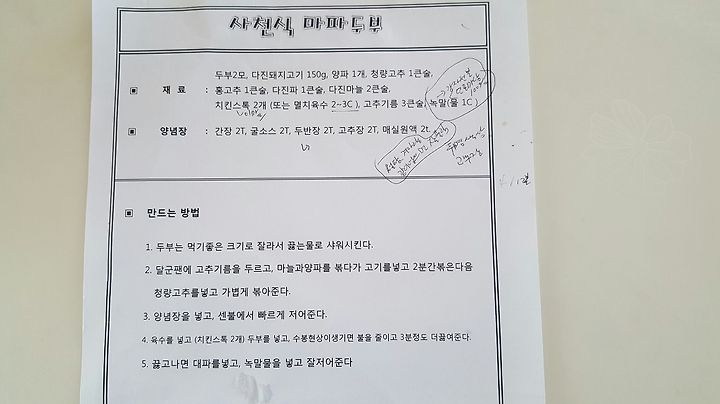 사천식 마파두부
두부2모, 다진돼지고기 150g, 양파 1개, 청량고추 1큰술,
▣ 재 료 : 홍고추 1큰술, 다진파 1큰술, 다진마늘 2큰술,
치킨스톡 2개 (또는 멸치육수 2~3C ), 고추기름 3큰술, 녹말(물 1C)
▣ 양념장 : 간장 2T, 굴소스 2T, 두반장 2T, 고추장 2T, 매실원액 2t.
▣ 만드는 방법
1. 두부는 먹기좋은 크기로 잘라서 끓는물로 샤워시킨다.
2. 달군팬에 고추기름을 두르고, 마늘과양파를 볶다가 고기를넣고 2분간볶은다음
청량고추를넣고 가볍게 볶아준다.
3. 양념장을 넣고, 센불에서 빠르게 저어준다.
4. 육수를 넣고 (치킨스톡 2개) 두부를 넣고, 수봉현상이생기면 불을 줄이고 3분정도 더끓여준다.
5. 끓고나면 대파를넣고, 녹말물을 넣고 잘저어준다